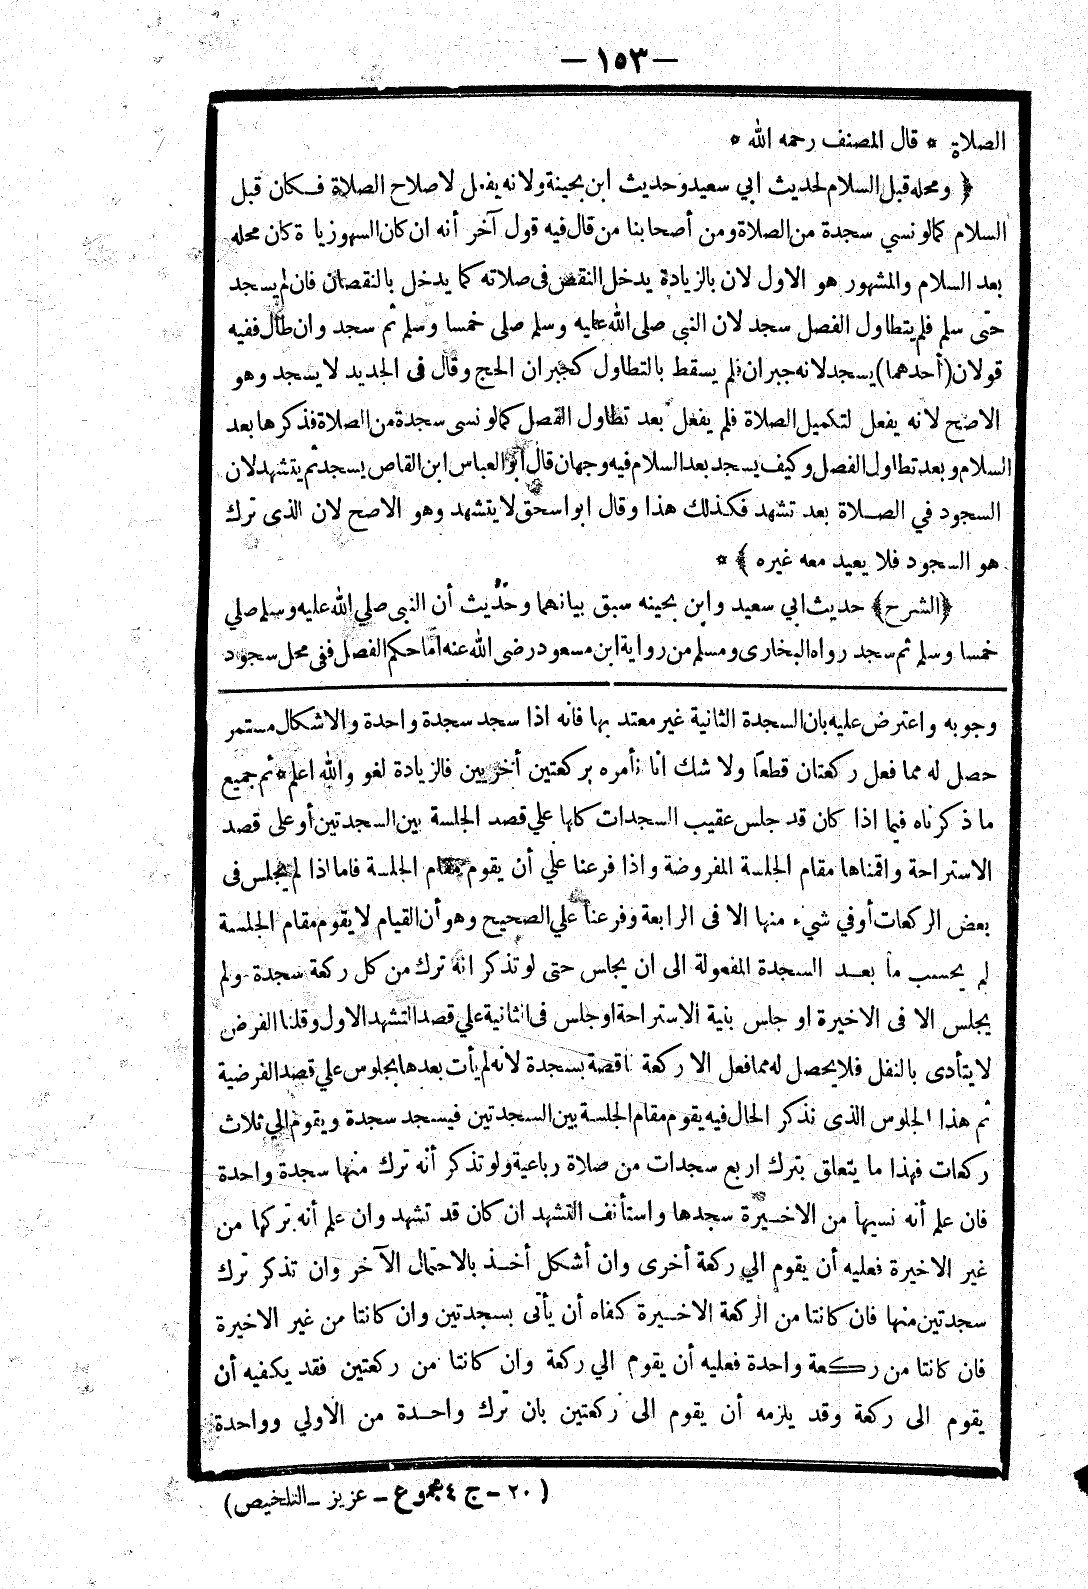 — ١٥٣ —
الصلاة * قال المصنف رحمه الله *
﴿ ومحله قبل السلام لحديث ابي سعيد وحديث ابن بحينة ولانه يفعل لاصلاح الصلاة فكان قبل
السلام كما لو نسي سجدة من الصلاة ومن أصحابنا من قال فيه قول آخر أنه ان كان السهو زيادة كان محله
بعد السلام والمشهور هو الاول لان بالزيادة يدخل النقص فى صلاته كما يدخل بالنقصان فان لم يسجد
حتى سلم فلم يتطاول الفصل سجد لان النبى صلى الله عليه وسلم صلى خمسا وسلم ثم سجد وان طال ففيه
قولان (أحدهما) يسجد لانه جبران فلم يسقط بالتطاول كجبران الحج وقال فى الجديد لا يسجد وهو
الاصح لانه يفعل لتكميل الصلاة فلم يفعل بعد تطاول الفصل كما لو نسى سجدة من الصلاة فذكرها بعد
السلام وبعد تطاول الفصل وكيف يسجد بعد السلام فيه وجهان قال أبو العباس ابن القاص يسجد ثم يتشهد لان
السجود في الصلاة بعد تشهد فكذلك هذا وقال ابو اسحق لا يتشهد وهو الاصح لان الذى ترك
هو السجود فلا يعيد معه غيره ﴾ *
﴿الشرح﴾ حديث ابي سعيد وابن بحينه سبق بيانهما وحديث أن النبى صلي الله عليه وسلم صلي
خمسا وسلم ثم سجد رواه البخارى ومسلم من رواية ابن مسعود رضى الله عنه أما حكم الفصل ففى محل سجود
وجوبه واعترض عليه بان السجدة الثانية غير معتد بها فانه اذا سجد سجدة واحدة والاشكال مستمر
حصل له مما فعل ركعتان قطعاً ولا شك انا نأمره بركعتين أخريين فالزيادة لغو والله اعلم * ثم جميع
ما ذكرناه فيما اذا كان قد جلس عقيب السجدات كلها علي قصد الجلسة بين السجدتين أو على قصد
الاستراحة واقمناها مقام الجلسة المفروضة واذا فرعنا علي أن يقوم مقام الجلسة فاما اذا لم يجلس فى
بعض الركعات أو في شيء منها الا فى الرابعة وفرعنا علي الصحيح وهو أن القيام لا يقوم مقام الجلسة
لم يحسب ما بعد السجدة المفعولة الى ان يجلس حتى لو تذكر انه ترك من كل ركعة سجدة ولم
يجلس الا فى الاخيرة او جلس بنية الاستراحة او جلس فى الثانية علي قصد التشهد الاول وقلنا الفرض
لا يتأدى بالنفل فلا يحصل له مما فعل الا ركعة ناقصة بسجدة لانه لم يأت بعدها بجلوس علي قصد الفرضية
ثم هذا الجلوس الذى نذكر الحال فيه يقوم مقام الجلسة بين السجدتين فيسجد سجدة ويقوم الي ثلاث
ركعات فهذا ما يتعلق بترك اربع سجدات من صلاة رباعية ولو تذكر أنه ترك منها سجدة واحدة
فان علم أنه نسيها من الاخيرة سجدها واستأنف التشهد ان كان قد تشهد وان علم أنه تركها من
غير الاخيرة فعليه أن يقوم الي ركعة أخرى وان أشكل أخذ بالاحتمال الآخر وان تذكر ترك
سجدتين منها فان كانتا من الركعة الاخيرة كفاه أن يأتى بسجدتين وان كانتا من غير الاخيرة
فان كانتا من ركعة واحدة فعليه أن يقوم الي ركعة وان كانتا من ركعتين فقد يكفيه أن
يقوم الى ركعة وقد يلزمه أن يقوم الى ركعتين بان ترك واحدة من الأولي وواحدة
( ٢٠ - ج ٤ مجموع - عزيز - التلخيص)